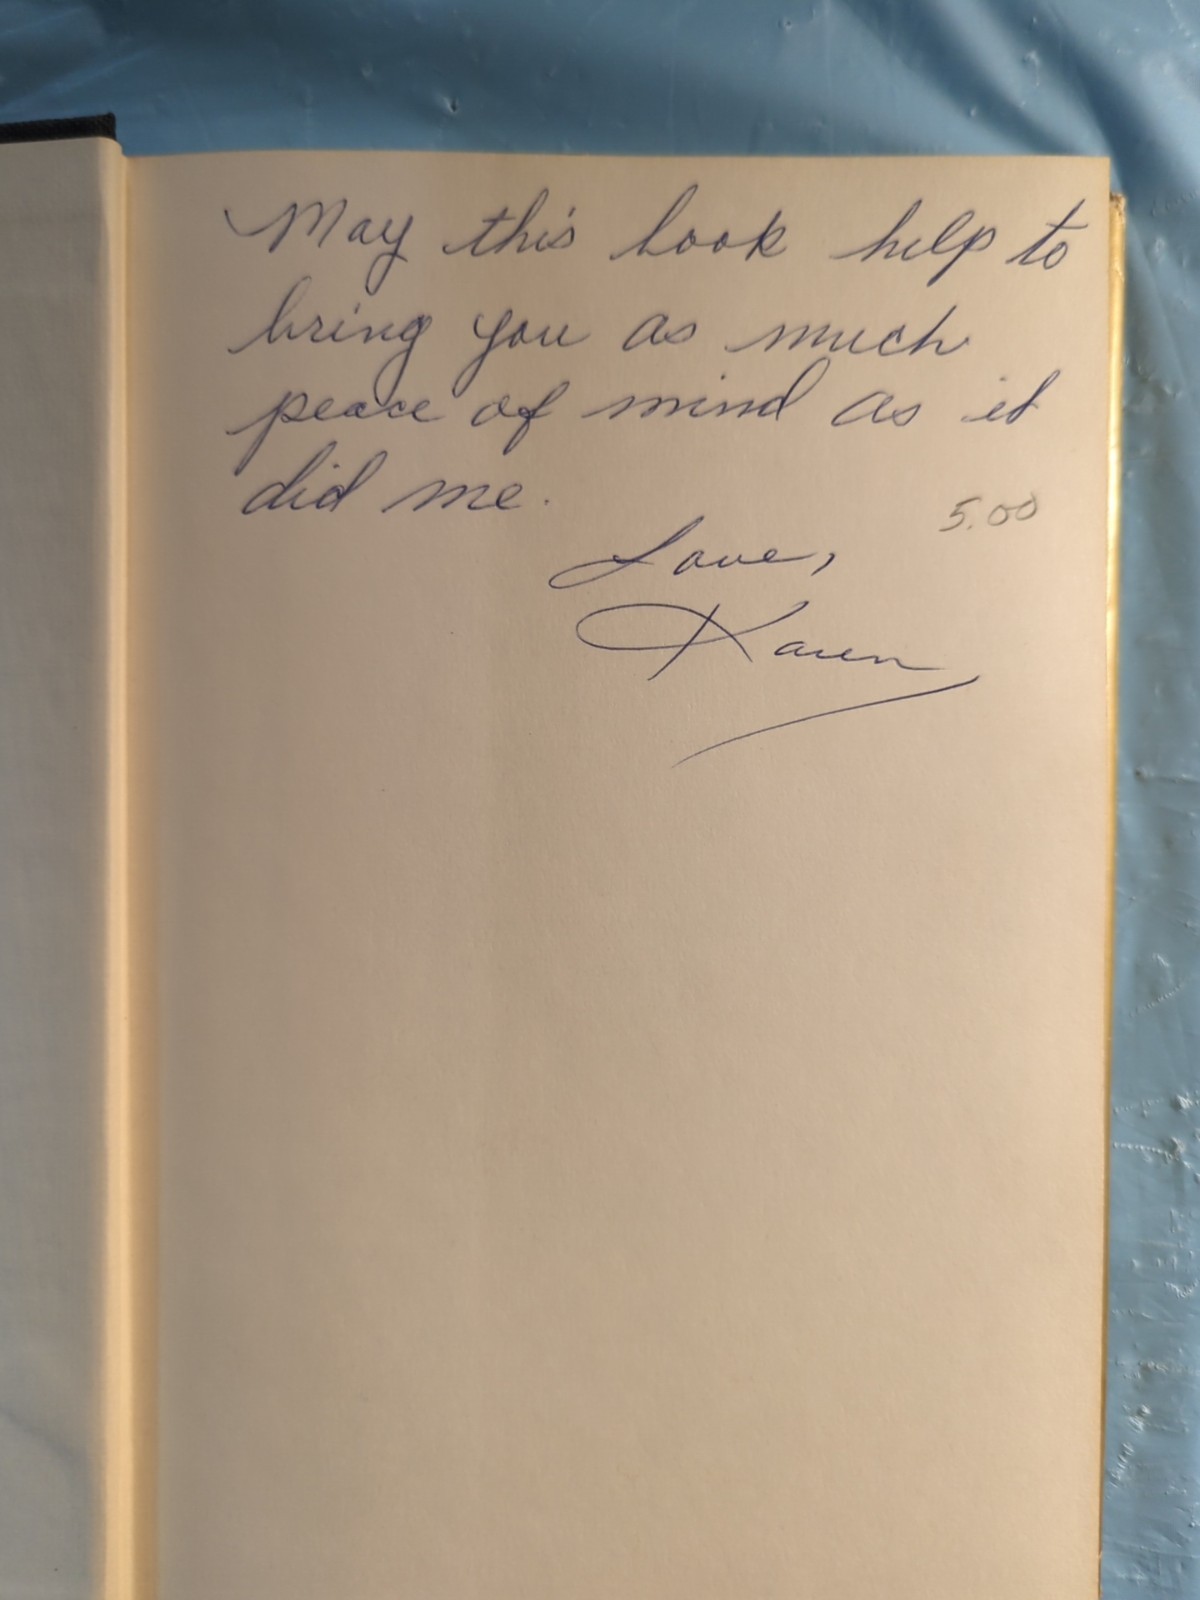 May this book help to
bring you as much
peace of mind as it
did me.
5.00
Love,
Karen